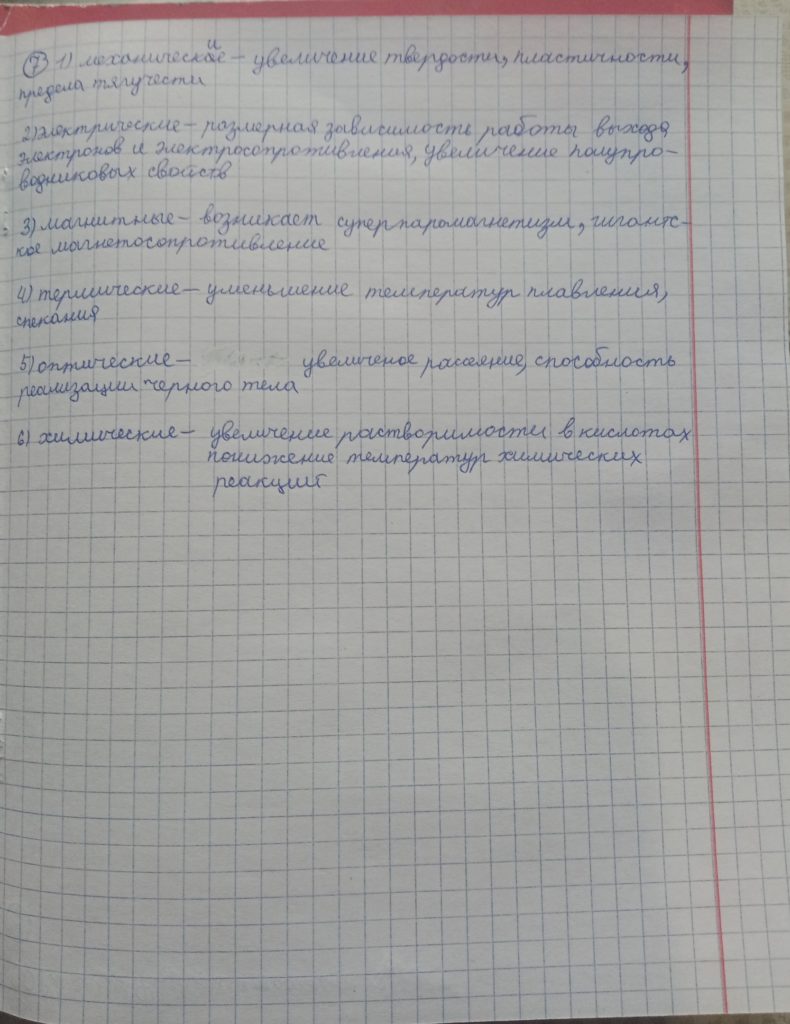 7 1) механические – увеличение твердости, пластичности,
предела тягучести
2) электрические – размерная зависимость работы выхода
электронов и электросопротивления, увеличение полупро-
водниковых свойств
3) магнитные – возникает суперпарамагнетизм, гигантс-
кое магнетосопротивление
4) термические – уменьшение температур плавления,
спекания
5) оптические – увеличеное рассеяние, способность
реализации черного тела
6) химические – увеличение растворимости в кислотах
понижение температур химических
реакций